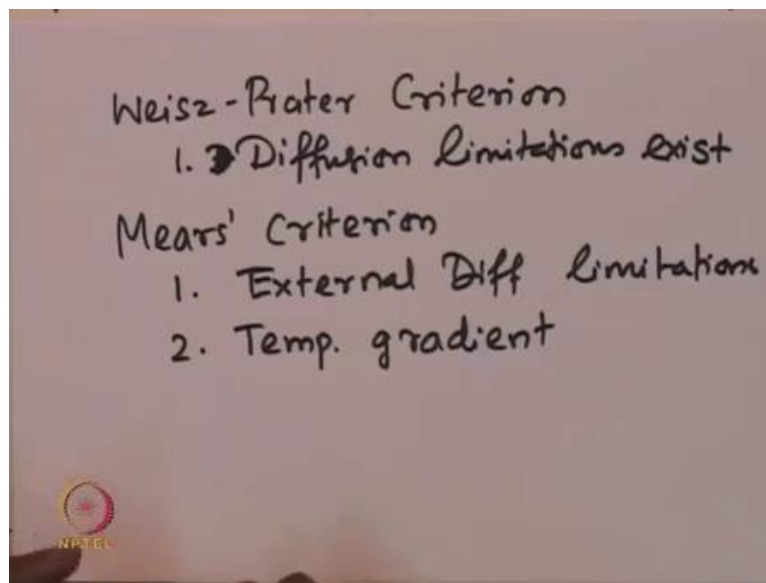 Weisz-Prater Criterion
1. Diffusion limitations exist
Mears' Criterion
1. External Diff limitations
2. Temp. gradient
NPTEL